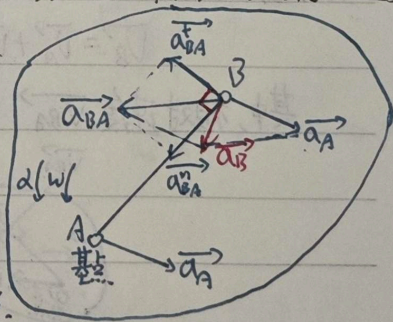 a⃗ᵗ_BA
B
a⃗_BA
a⃗_A
a⃗_B
a⃗ⁿ_BA
α ω
A
基点
a⃗_A